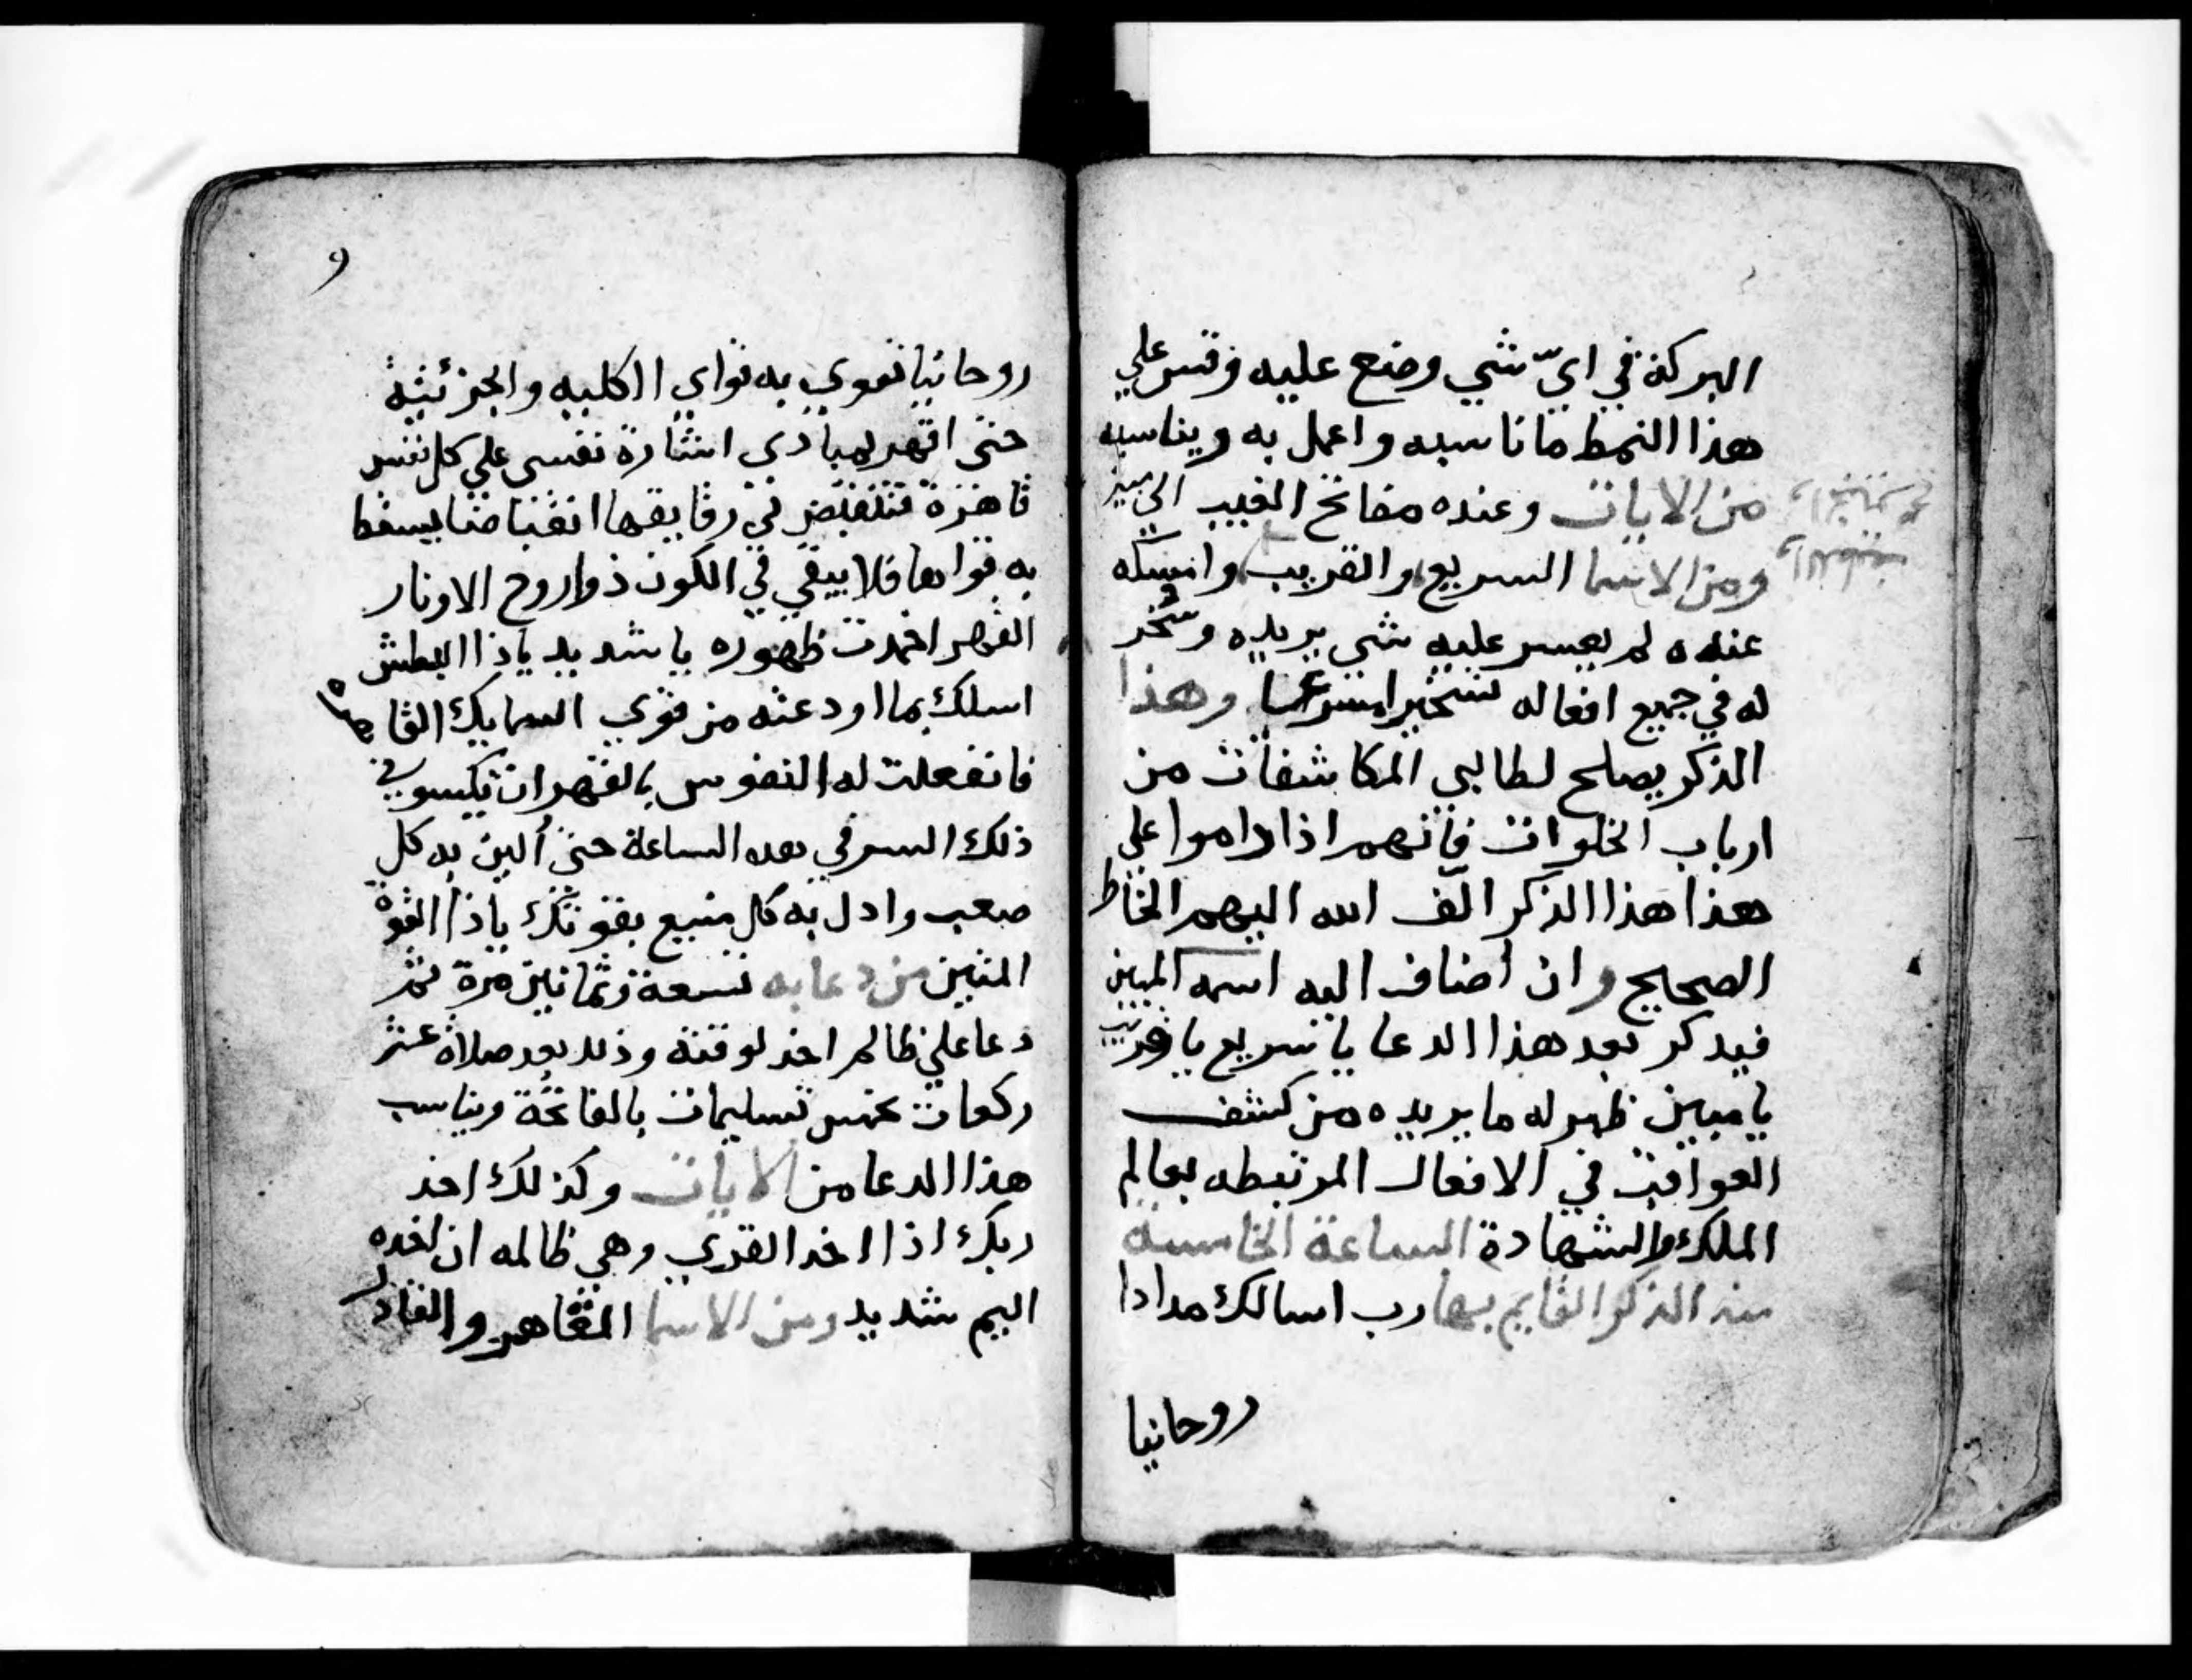 البركة في اي شي وضع عليه وقس علي
هذا النمط ماناسبه واعمل به ويناسبه
من الايات وعنده مفاتح الغيب الى مبين
ومن الاسما السريع والقريب وامسكه
عنده لم يعسر عليه شي يريده وسخر
له في جميع افعاله تسخيرا سرعيا وهذا
الذكر يصلح لطالبي المكاشفات من
ارباب الخلوات فانهم اذا داموا علي
هذا هذا الذكر الف الله اليهم الخاطر
الصحيح وان أضاف اليه اسمه المبين
فيدكر بعد هذا الدعا يا سريع يا قريب
يا مبين ظهر له ما يريده من كشف
العواقب في الافعال المرتبطه بعالم
الملك والشهادة الساعة الخامسة
منه الذكر القايم بها رب اسالك مدادا
روحانيا
٩
روحانيا تقوي به قواي الكليه والجزئية
حتى اقهر بمبادي اشارة نفسي علي كل نفس
قاهرة فتنقبض لي رقايقها انقباضا يسقط
به قواها فلا يبقي في الكون ذواروح الاونار
القهر اخمدت ظهوره يا شديد ياذا البطش
اسلك بما اودعته من قوي اسمايك القاهره
فانفعلت له النفوس بالقهر ان تكسوني
ذلك السر في هده الساعة حتى ألين به كل
صعب وادل به كل منيع بقوتك ياذا القوة
المتين من دعا به تسعة وثمانين مرة ثم
دعا علي ظالم اخد لوقته وذلك بعد صلاة عشر
ركعات بخمس تسليمات بالفاتحة ويناسب
هذا الدعا من الايات وكذلك اخذ
ربك اذا اخد القري وهي ظالمه ان اخده
اليم شديد ومن الاسما القاهر والقادر